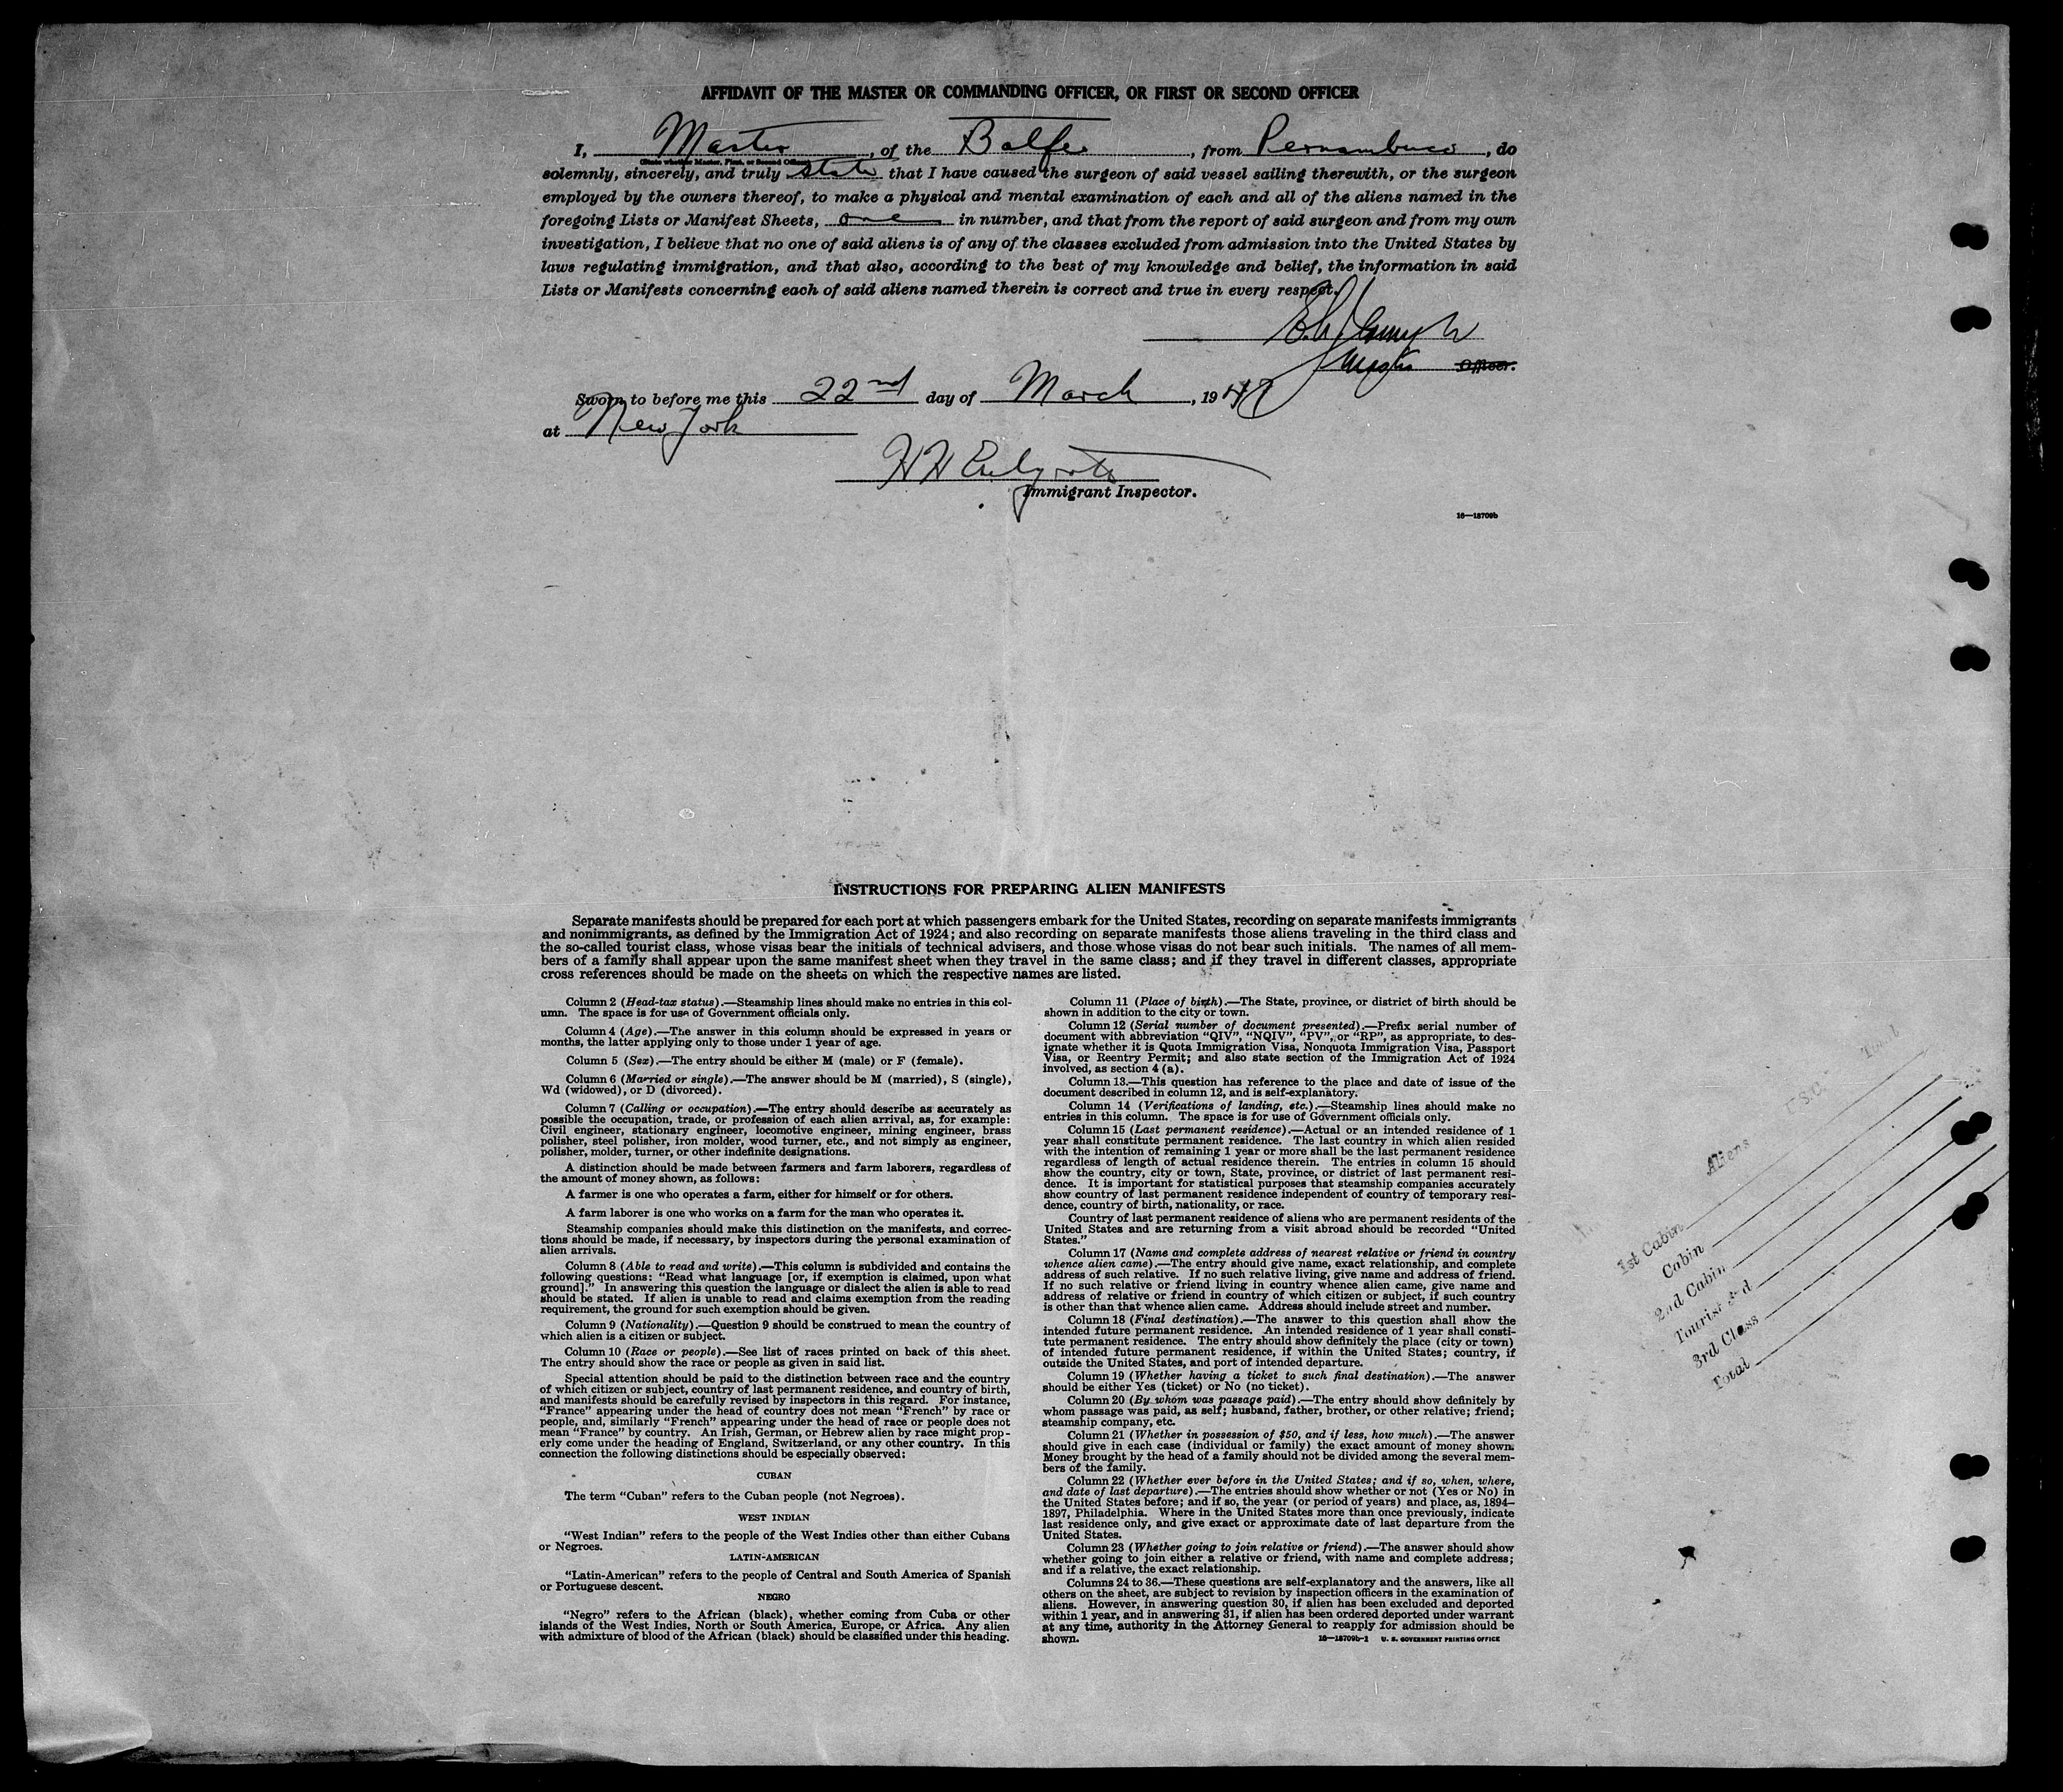 AFFIDAVIT OF THE MASTER OR COMMANDING OFFICER, OR FIRST OR SECOND OFFICER
I, Master, of the Balfe, from Pernambuco, do
(State whether Master, First, or Second Officer)
solemnly, sincerely, and truly state that I have caused the surgeon of said vessel sailing therewith, or the surgeon
employed by the owners thereof, to make a physical and mental examination of each and all of the aliens named in the
foregoing Lists or Manifest Sheets, one in number, and that from the report of said surgeon and from my own
investigation, I believe that no one of said aliens is of any of the classes excluded from admission into the United States by
laws regulating immigration, and that also, according to the best of my knowledge and belief, the information in said
Lists or Manifests concerning each of said aliens named therein is correct and true in every respect.
Master Officer.
Sworn to before me this 22nd day of March, 19
at New York
Immigrant Inspector.
16—18709b
INSTRUCTIONS FOR PREPARING ALIEN MANIFESTS
Separate manifests should be prepared for each port at which passengers embark for the United States, recording on separate manifests immigrants
and nonimmigrants, as defined by the Immigration Act of 1924; and also recording on separate manifests those aliens traveling in the third class and
the so-called tourist class, whose visas bear the initials of technical advisers, and those whose visas do not bear such initials. The names of all mem-
bers of a family shall appear upon the same manifest sheet when they travel in the same class; and if they travel in different classes, appropriate
cross references should be made on the sheets on which the respective names are listed.
Column 2 (Head-tax status).—Steamship lines should make no entries in this col-
umn. The space is for use of Government officials only.
Column 4 (Age).—The answer in this column should be expressed in years or
months, the latter applying only to those under 1 year of age.
Column 5 (Sex).—The entry should be either M (male) or F (female).
Column 6 (Married or single).—The answer should be M (married), S (single),
Wd (widowed), or D (divorced).
Column 7 (Calling or occupation).—The entry should describe as accurately as
possible the occupation, trade, or profession of each alien arrival, as, for example:
Civil engineer, stationary engineer, locomotive engineer, mining engineer, brass
polisher, steel polisher, iron molder, wood turner, etc., and not simply as engineer,
polisher, molder, turner, or other indefinite designations.
A distinction should be made between farmers and farm laborers, regardless of
the amount of money shown, as follows:
A farmer is one who operates a farm, either for himself or for others.
A farm laborer is one who works on a farm for the man who operates it.
Steamship companies should make this distinction on the manifests, and correc-
tions should be made, if necessary, by inspectors during the personal examination of
alien arrivals.
Column 8 (Able to read and write).—This column is subdivided and contains the
following questions: "Read what language [or, if exemption is claimed, upon what
ground]." In answering this question the language or dialect the alien is able to read
should be stated. If alien is unable to read and claims exemption from the reading
requirement, the ground for such exemption should be given.
Column 9 (Nationality).—Question 9 should be construed to mean the country of
which alien is a citizen or subject.
Column 10 (Race or people).—See list of races printed on back of this sheet.
The entry should show the race or people as given in said list.
Special attention should be paid to the distinction between race and the country
of which citizen or subject, country of last permanent residence, and country of birth,
and manifests should be carefully revised by inspectors in this regard. For instance,
"France" appearing under the head of country does not mean "French" by race or
people, and, similarly "French" appearing under the head of race or people does not
mean "France" by country. An Irish, German, or Hebrew alien by race might prop-
erly come under the heading of England, Switzerland, or any other country. In this
connection the following distinctions should be especially observed:
CUBAN
The term "Cuban" refers to the Cuban people (not Negroes).
WEST INDIAN
"West Indian" refers to the people of the West Indies other than either Cubans
or Negroes.
LATIN-AMERICAN
"Latin-American" refers to the people of Central and South America of Spanish
or Portuguese descent.
NEGRO
"Negro" refers to the African (black), whether coming from Cuba or other
islands of the West Indies, North or South America, Europe, or Africa. Any alien
with admixture of blood of the African (black) should be classified under this heading.
Column 11 (Place of birth).—The State, province, or district of birth should be
shown in addition to the city or town.
Column 12 (Serial number of document presented).—Prefix serial number of
document with abbreviation "QIV", "NQIV", "PV", or "RP", as appropriate, to des-
ignate whether it is Quota Immigration Visa, Nonquota Immigration Visa, Passport
Visa, or Reentry Permit; and also state section of the Immigration Act of 1924
involved, as section 4 (a).
Column 13.—This question has reference to the place and date of issue of the
document described in column 12, and is self-explanatory.
Column 14 (Verifications of landing, etc.).—Steamship lines should make no
entries in this column. The space is for use of Government officials only.
Column 15 (Last permanent residence).—Actual or an intended residence of 1
year shall constitute permanent residence. The last country in which alien resided
with the intention of remaining 1 year or more shall be the last permanent residence
regardless of length of actual residence therein. The entries in column 15 should
show the country, city or town, State, province, or district of last permanent resi-
dence. It is important for statistical purposes that steamship companies accurately
show country of last permanent residence independent of country of temporary resi-
dence, country of birth, nationality, or race.
Country of last permanent residence of aliens who are permanent residents of the
United States and are returning from a visit abroad should be recorded "United
States."
Column 17 (Name and complete address of nearest relative or friend in country
whence alien came).—The entry should give name, exact relationship, and complete
address of such relative. If no such relative living, give name and address of friend.
If no such relative or friend living in country whence alien came, give name and
address of relative or friend in country of which citizen or subject, if such country
is other than that whence alien came. Address should include street and number.
Column 18 (Final destination).—The answer to this question shall show the
intended future permanent residence. An intended residence of 1 year shall consti-
tute permanent residence. The entry should show definitely the place (city or town)
of intended future permanent residence, if within the United States; country, if
outside the United States, and port of intended departure.
Column 19 (Whether having a ticket to such final destination).—The answer
should be either Yes (ticket) or No (no ticket).
Column 20 (By whom was passage paid).—The entry should show definitely by
whom passage was paid, as self; husband, father, brother, or other relative; friend;
steamship company, etc.
Column 21 (Whether in possession of $50, and if less, how much).—The answer
should give in each case (individual or family) the exact amount of money shown.
Money brought by the head of a family should not be divided among the several mem-
bers of the family.
Column 22 (Whether ever before in the United States; and if so, when, where,
and date of last departure).—The entries should show whether or not (Yes or No) in
the United States before; and if so, the year (or period of years) and place, as, 1894–
1897, Philadelphia. Where in the United States more than once previously, indicate
last residence only, and give exact or approximate date of last departure from the
United States.
Column 23 (Whether going to join relative or friend).—The answer should show
whether going to join either a relative or friend, with name and complete address;
and if a relative, the exact relationship.
Columns 24 to 36.—These questions are self-explanatory and the answers, like all
others on the sheet, are subject to revision by inspection officers in the examination of
aliens. However, in answering question 30, if alien has been excluded and deported
within 1 year, and in answering 31, if alien has been ordered deported under warrant
at any time, authority in the Attorney General to reapply for admission should be
shown.
16—18709b-1 U. S. GOVERNMENT PRINTING OFFICE
Aliens
1st Cabin
Cabin
2nd Cabin
Tourist 3rd
3rd Class
Total